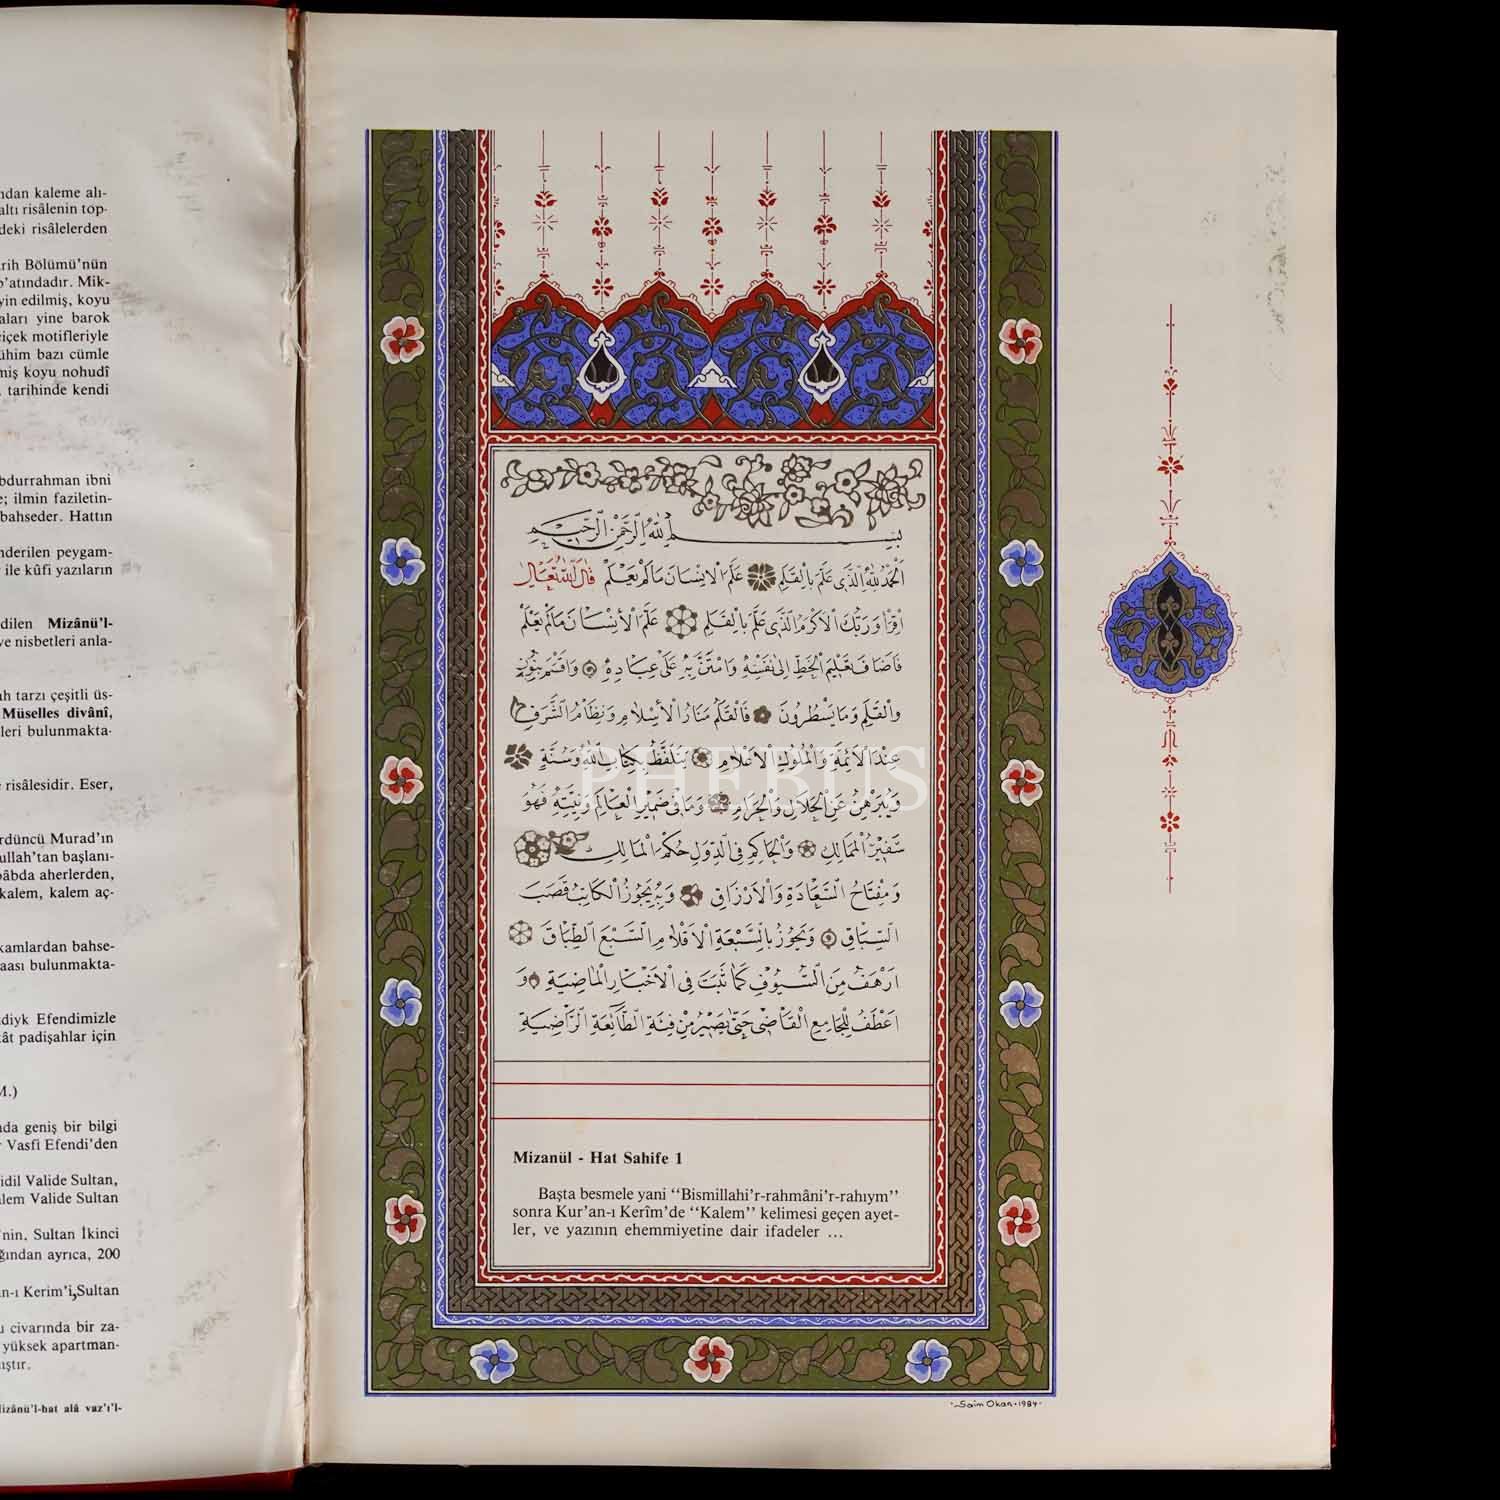 ndan kaleme alı-
altı risâlenin top-
deki risâlelerden
rih Bölümü'nün
o'atındadır. Mik-
yin edilmiş, koyu
aları yine barok
çiçek motifleriyle
ühim bazı cümle
miş koyu nohudî
tarihinde kendi
bdurrahman ibni
e; ilmin faziletin-
bahseder. Hattın
nderilen peygam-
ile kûfi yazıların
dilen Mizânü'l-
ve nisbetleri anla-
ah tarzı çeşitli üs-
Müselles divânî,
leri bulunmakta-
risâlesidir. Eser,
rdüncü Murad'ın
ullah'tan başlanı-
bâbda aherlerden,
kalem, kalem aç-
kamlardan bahse-
aası bulunmakta-
diyk Efendimizle
ât padişahlar için
M.)
nda geniş bir bilgi
Vasfi Efendi'den
idil Valide Sultan,
alem Valide Sultan
'nin, Sultan İkinci
ğından ayrıca, 200
n-ı Kerim'i,Sultan
u civarında bir za-
yüksek apartman-
ıştır.
Mizânü'l-hat alâ vaz'ı'l-
بسم الله الرحمن الرحيم
الحمد لله الذى علم بالقلم علم الانسان مالم يعلم قال الله تعالى
اقرا وربك الاكرم الذى علم بالقلم علم الانسان مالم يعلم
فاضاف تعليم الخط الى نفسه وامتن به على عباده واقسم بنون
والقلم وما يسطرون فالقلم منار الاسلام ونظام الشرف
عند الائمة والملوك الاعلام يتلفظ بكتاب الله وسنة
ويبرهن عن الحلال والحرام ومافى ضمير العالم ونيته فهو
سفير الممالك والحاكم فى الدول حكم المالك
ومفتاح السعادة والارزاق وبه يحوز الكاتب قصب
السباق وتجوز بالسبعة الاقلام السبع الطباق
ارهف من السيوف كما ثبت فى الاخبار الماضية و
اعطف للجامع القاضى حتى يصير من فئة الطائعة الراضية
PHEBUS
Mizanül - Hat Sahife 1
Başta besmele yani “Bismillahi'r-rahmâni'r-rahıym”
sonra Kur'an-ı Kerîm'de “Kalem” kelimesi geçen ayet-
ler, ve yazının ehemmiyetine dair ifadeler ...
Saim Okan·1984·